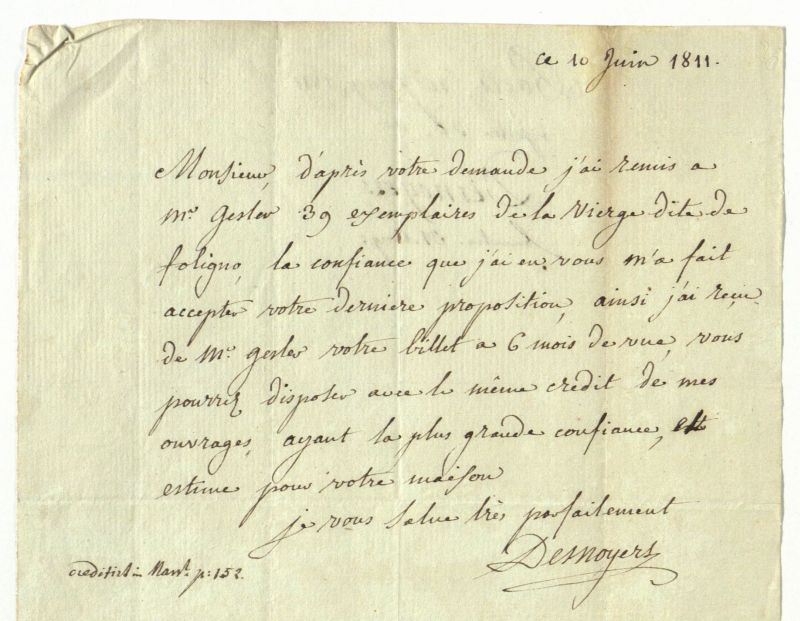 ce 10 Juin 1811.
Monsieur, d'après votre demande j'ai remis a
Mr. Gesler 39 exemplaires de la Vierge dite de
foligno, la confiance que j'ai en vous m'a fait
accepter votre derniere proposition, ainsi j'ai reçu
de Mr. gesler votre billet a 6 mois de vue, vous
pourrez disposer avec le même credit de mes
ouvrages, ayant la plus grande confiance, et
estime pour votre maison
je vous salue très parfaitement
Desnoyers
p: 152.